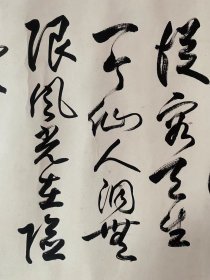 從容天生
一个仙人洞無
限風光在險